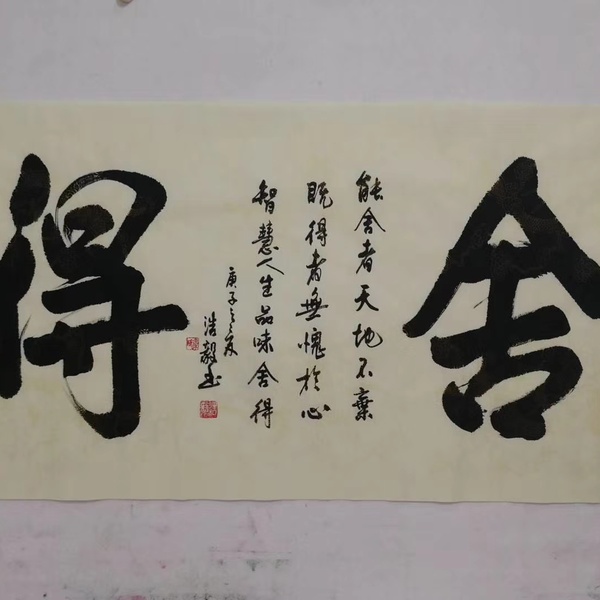 舍
能舍者天地不棄
既得者無愧於心
智慧人生品味舍得
庚子之夏
浩毅书
得